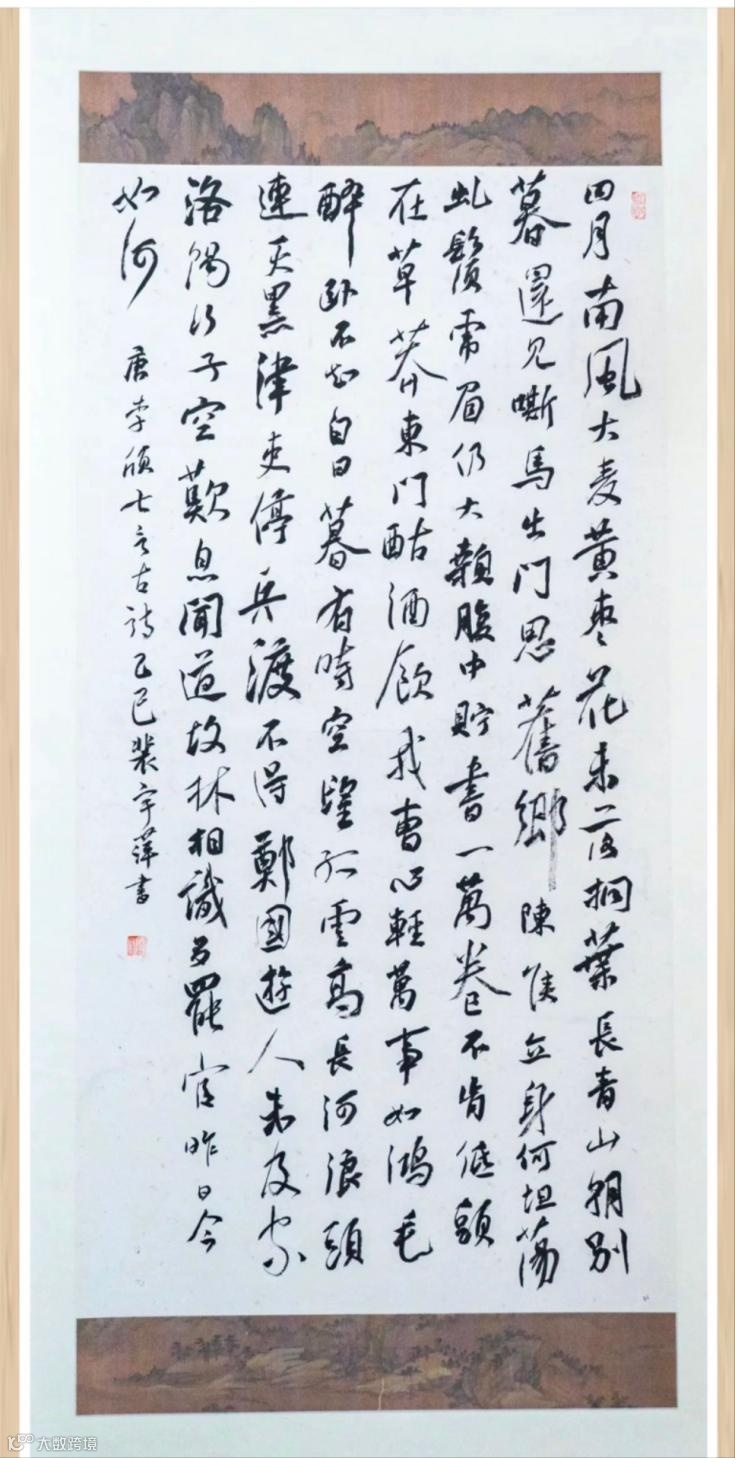 四月南風大麦黄枣花未落桐葉長青山朝別
暮還見嘶馬出門思舊鄉陳侯立身何坦蕩
虬鬚虎眉仍大顙腹中貯書一萬卷不肯低頭
在草莽東門酤酒飲我曹心輕萬事如鴻毛
醉卧不知白日暮有時空望孤雲高長河浪頭
連天黑津吏停兵渡不得鄭國遊人未及家
洛陽行子空歎息聞道故林相識多罷官昨日今
如何 唐李頎七言古詩乙巳裴宇萍書
大数跨境